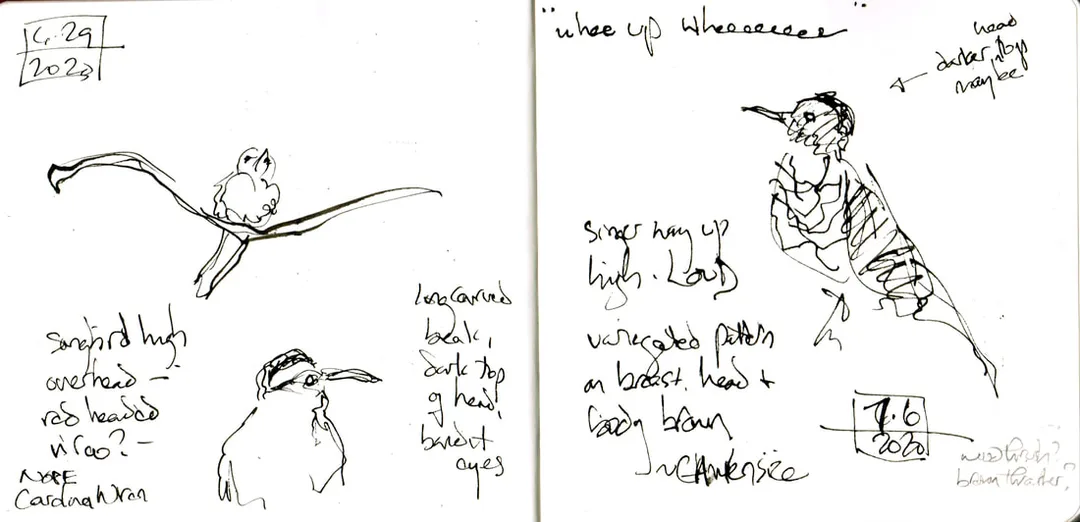 4.29
2020
songbird high
overhead –
red headed
vireo? –
NOPE
Carolina Wren
long curved
beak,
dark top
of head,
bandit
eyes
"whee up wheeeeeeee"
head
darker on top
maybe
singer way up
high. LOUD
variegated pattern
on breast. head +
body brown
7.6
2020
wood thrush?
brown thrasher?